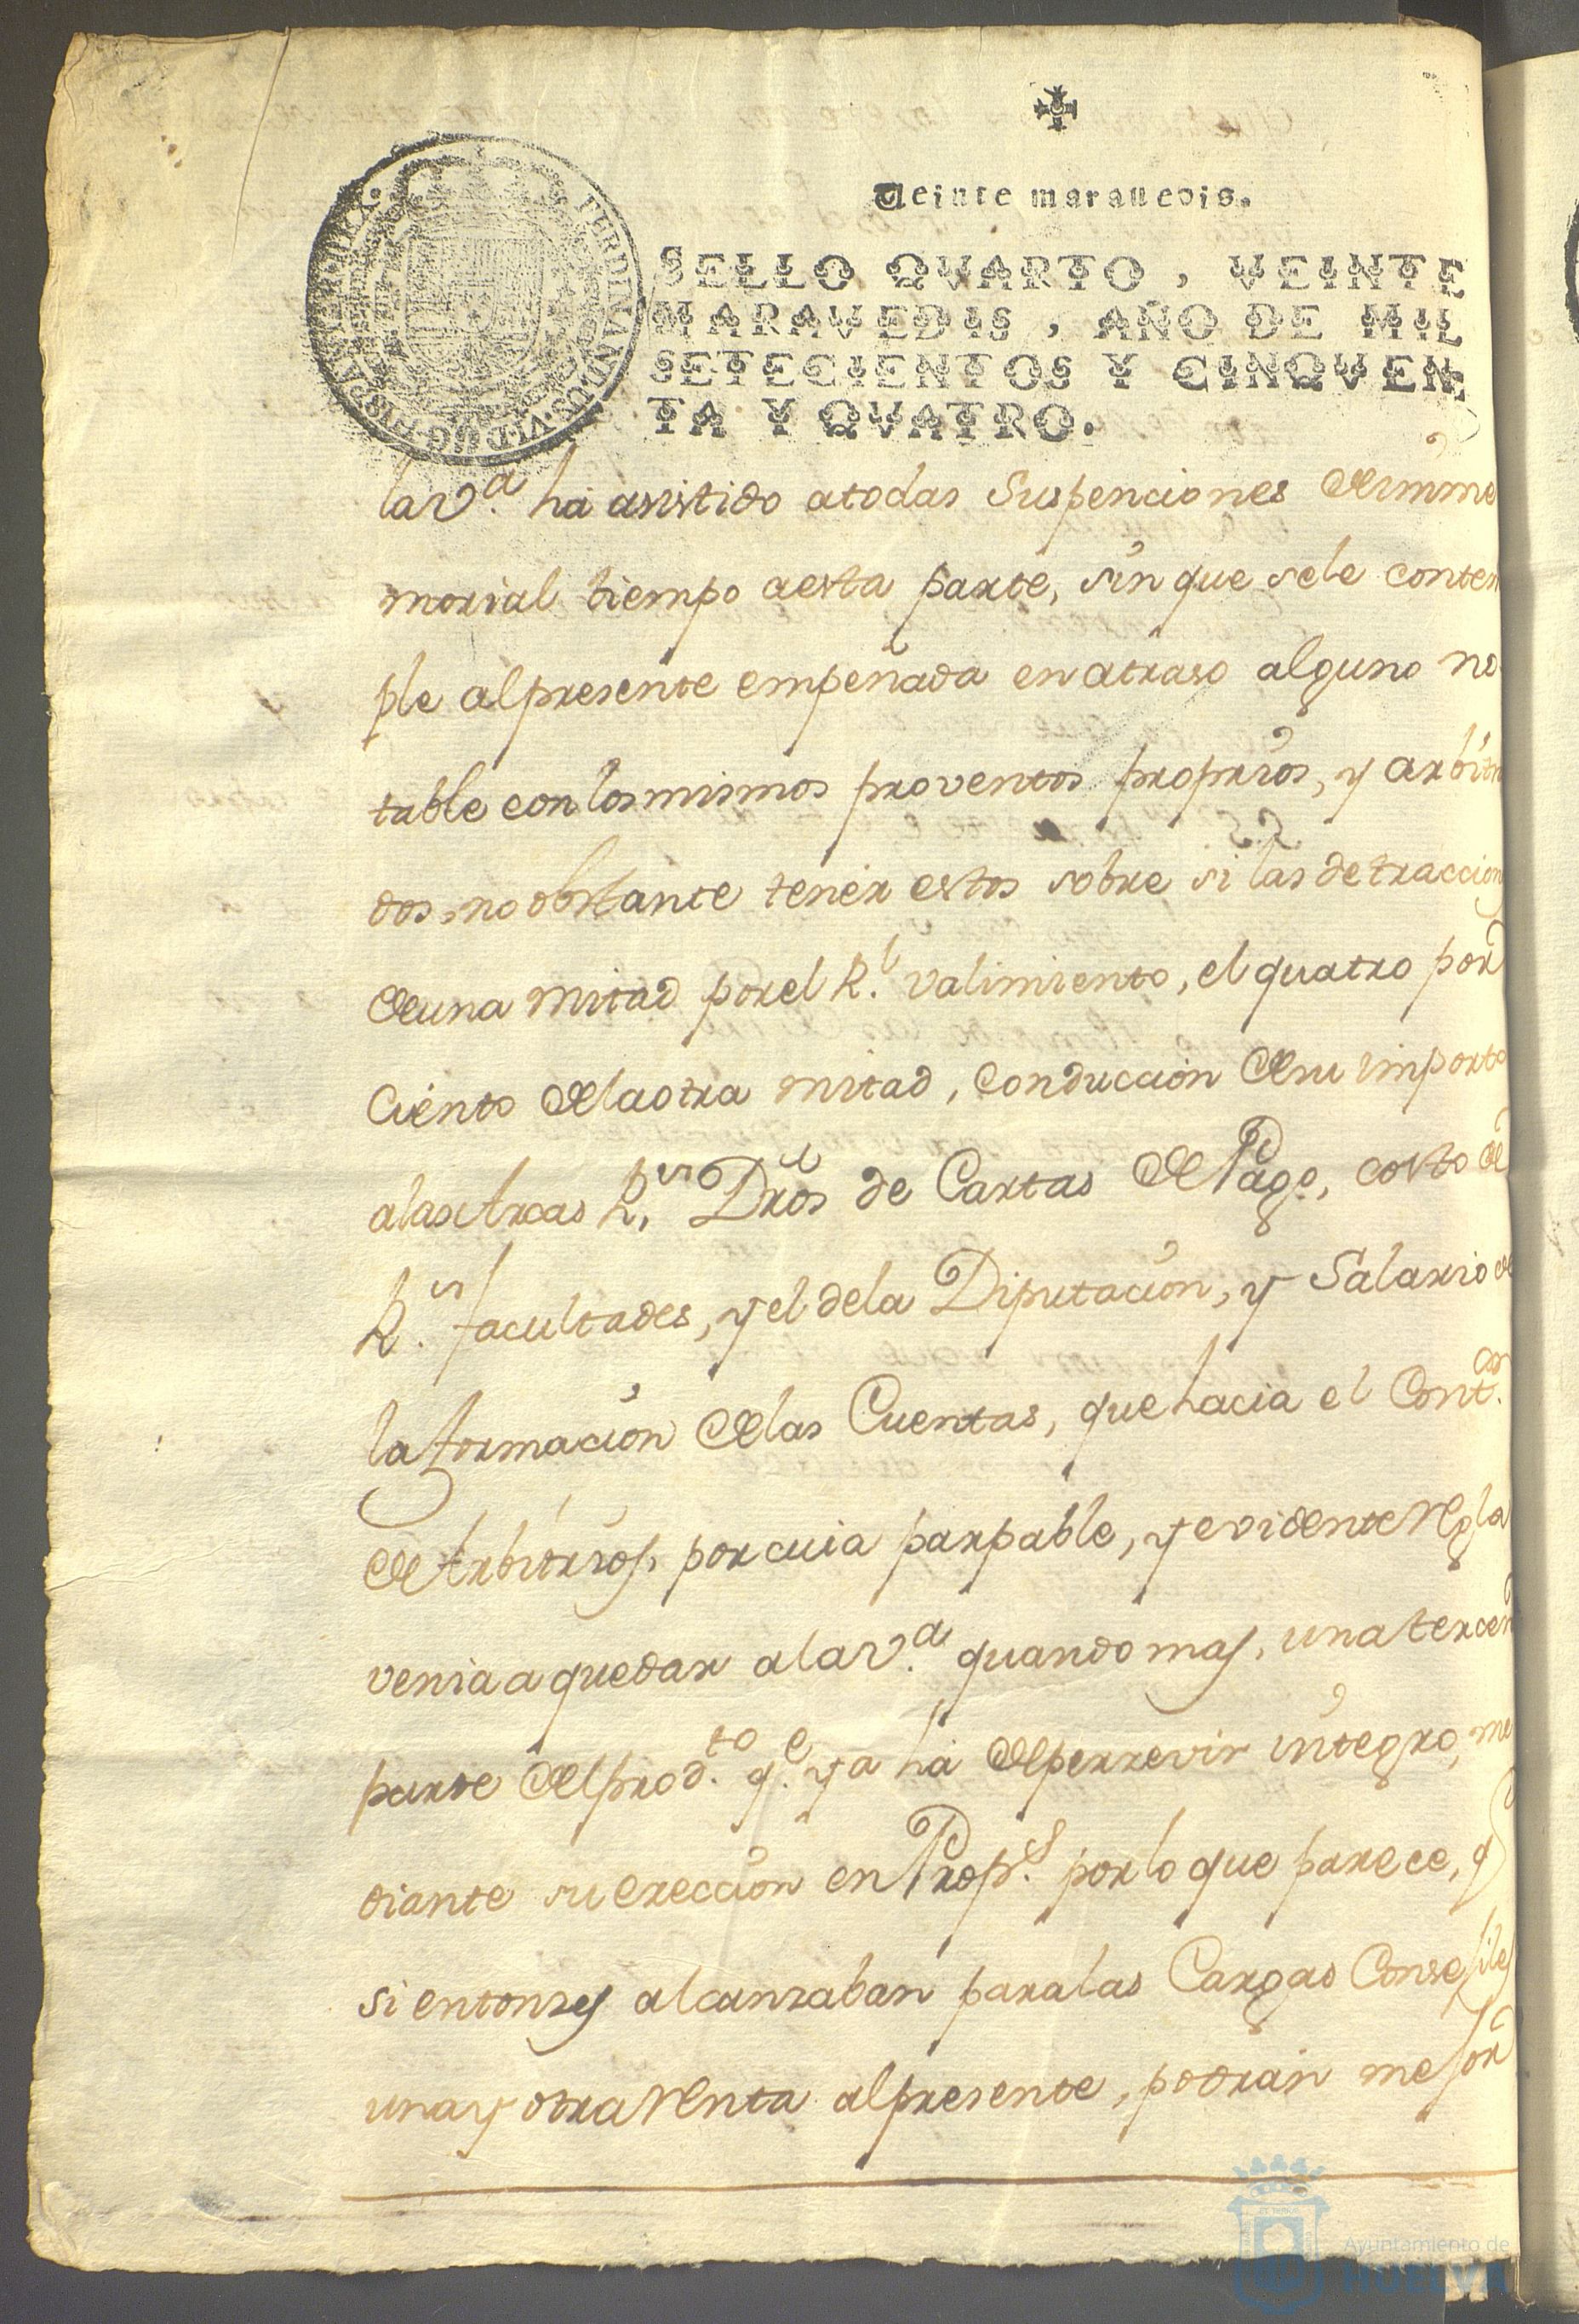 Veinte maravedis.
SELLO QVARTO, VEINTE
MARAVEDIS, AÑO DE MIL
SETECIENTOS Y CINQVEN
TA Y QVATRO.
FERDINANDUS·VI·D·G·HISPANIAR·REX·
la v.ª ha asistido a todas Suspenciones de imme
morial tiempo a esta parte, sin que se le contem
ple al presente empeñada en atraso alguno no
table con los mismos proventos proprios, y arbitra
dos, no obstante tenér estos sobre si las detraccion
de una mitad por el R.l valimiento, el quatro por
Ciento de la otra mitad, Conducción de su importe
a las Arcas R.s Dr̃os de Cartas de Pago, costo de
R.s facultades, y el de la Diputación, y Salario de
la formación de las Cuentas, que hacia el Cont.or
de Arbitrios, por cuia parpable, y evidente regla
venia a quedar a la v.ª quando mas, una tercera
parte del prod.to q.e ya há de perzevir integro, me
diante su erección en Prop.s por lo que parece, q
si entonzes alcanzaban para las Cargas Consejiles
una y otra renta al presente, podrán mejor
Ayuntamiento de
HUELVA